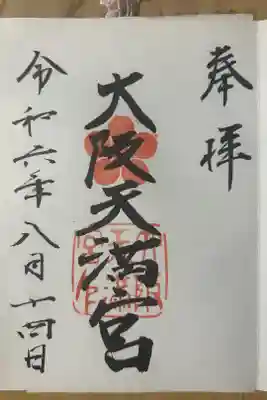 奉拝
大阪天満宮
令和六年八月十四日